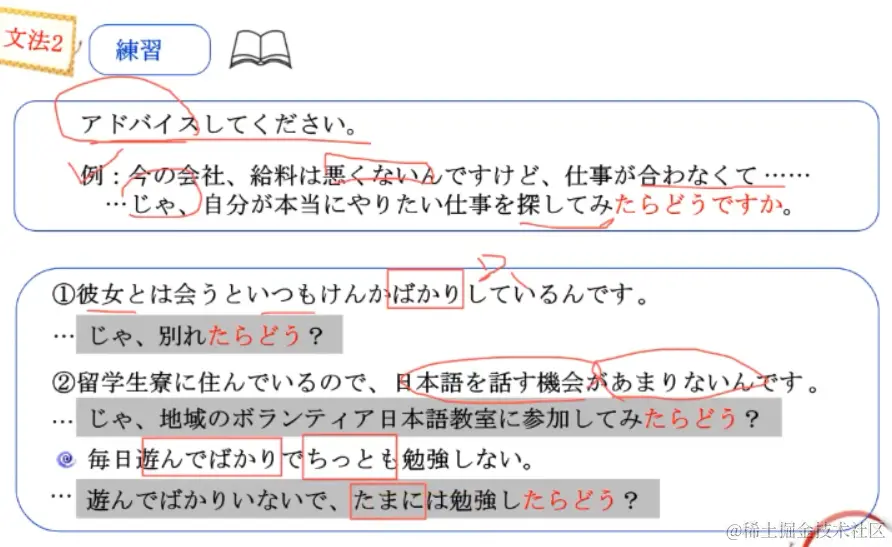 文法2
練習
アドバイスしてください。
例：今の会社、給料は悪くないんですけど、仕事が合わなくて……
…じゃ、自分が本当にやりたい仕事を探してみたらどうですか。
①彼女とは会うといつもけんかばかりしているんです。
… じゃ、別れたらどう？
②留学生寮に住んでいるので、日本語を話す機会があまりないんです。
… じゃ、地域のボランティア日本語教室に参加してみたらどう？
毎日遊んでばかりでちっとも勉強しない。
… 遊んでばかりいないで、たまには勉強したらどう？
@稀土掘金技术社区